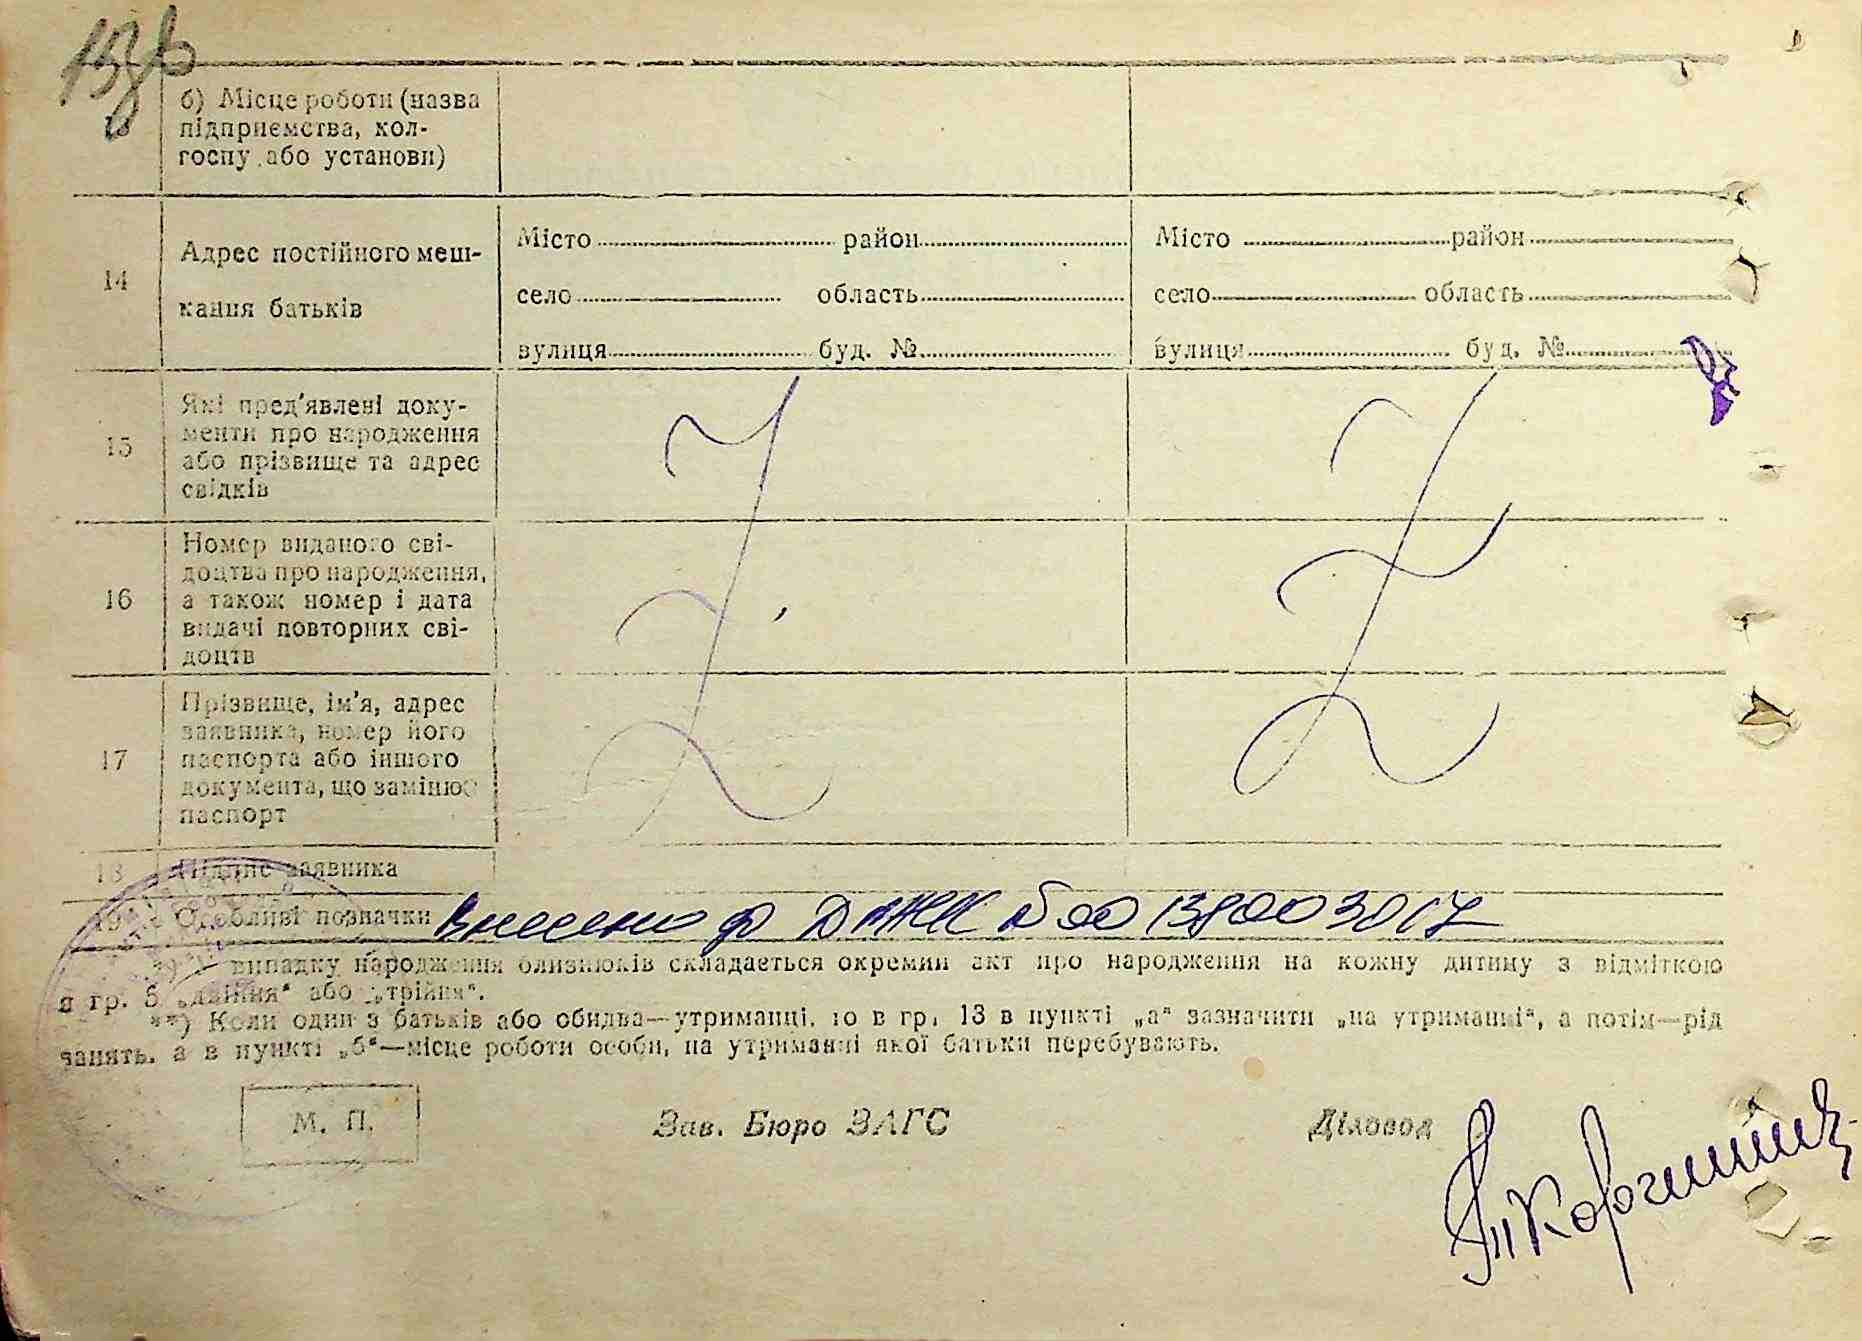 13
б) Місце роботи (назва
підприємства, кол-
госпу або установи)
14
Адрес постійного меш-
кання батьків
Місто район
село область
вулиця буд. №
Місто район
село область
вулиця буд. №
15
Які пред'явлені доку-
менти про народження
або прізвище та адрес
свідків
16
Номер виданого сві-
доцтва про народження,
а також номер і дата
видачі повторних сві-
доцтв
17
Прізвище, ім'я, адрес
заявника, номер його
паспорта або іншого
документа, що замінює
паспорт
18 Підпис заявника
19 Особливі позначки Внесено до ДРАЦС №00138003017
випадку народження близнюків складається окремий акт про народження на кожну дитину з відміткою
в гр. 5 „двійня“ або „трійня“.
**) Коли один з батьків або обидва—утриманці, то в гр. 13 в пункті „а“ зазначити „на утриманні“, а потім—рід
занять, а в пункті „б“—місце роботи особи, на утриманні якої батьки перебувають.
М. П.
Зав. Бюро ЗАГС
Діловод